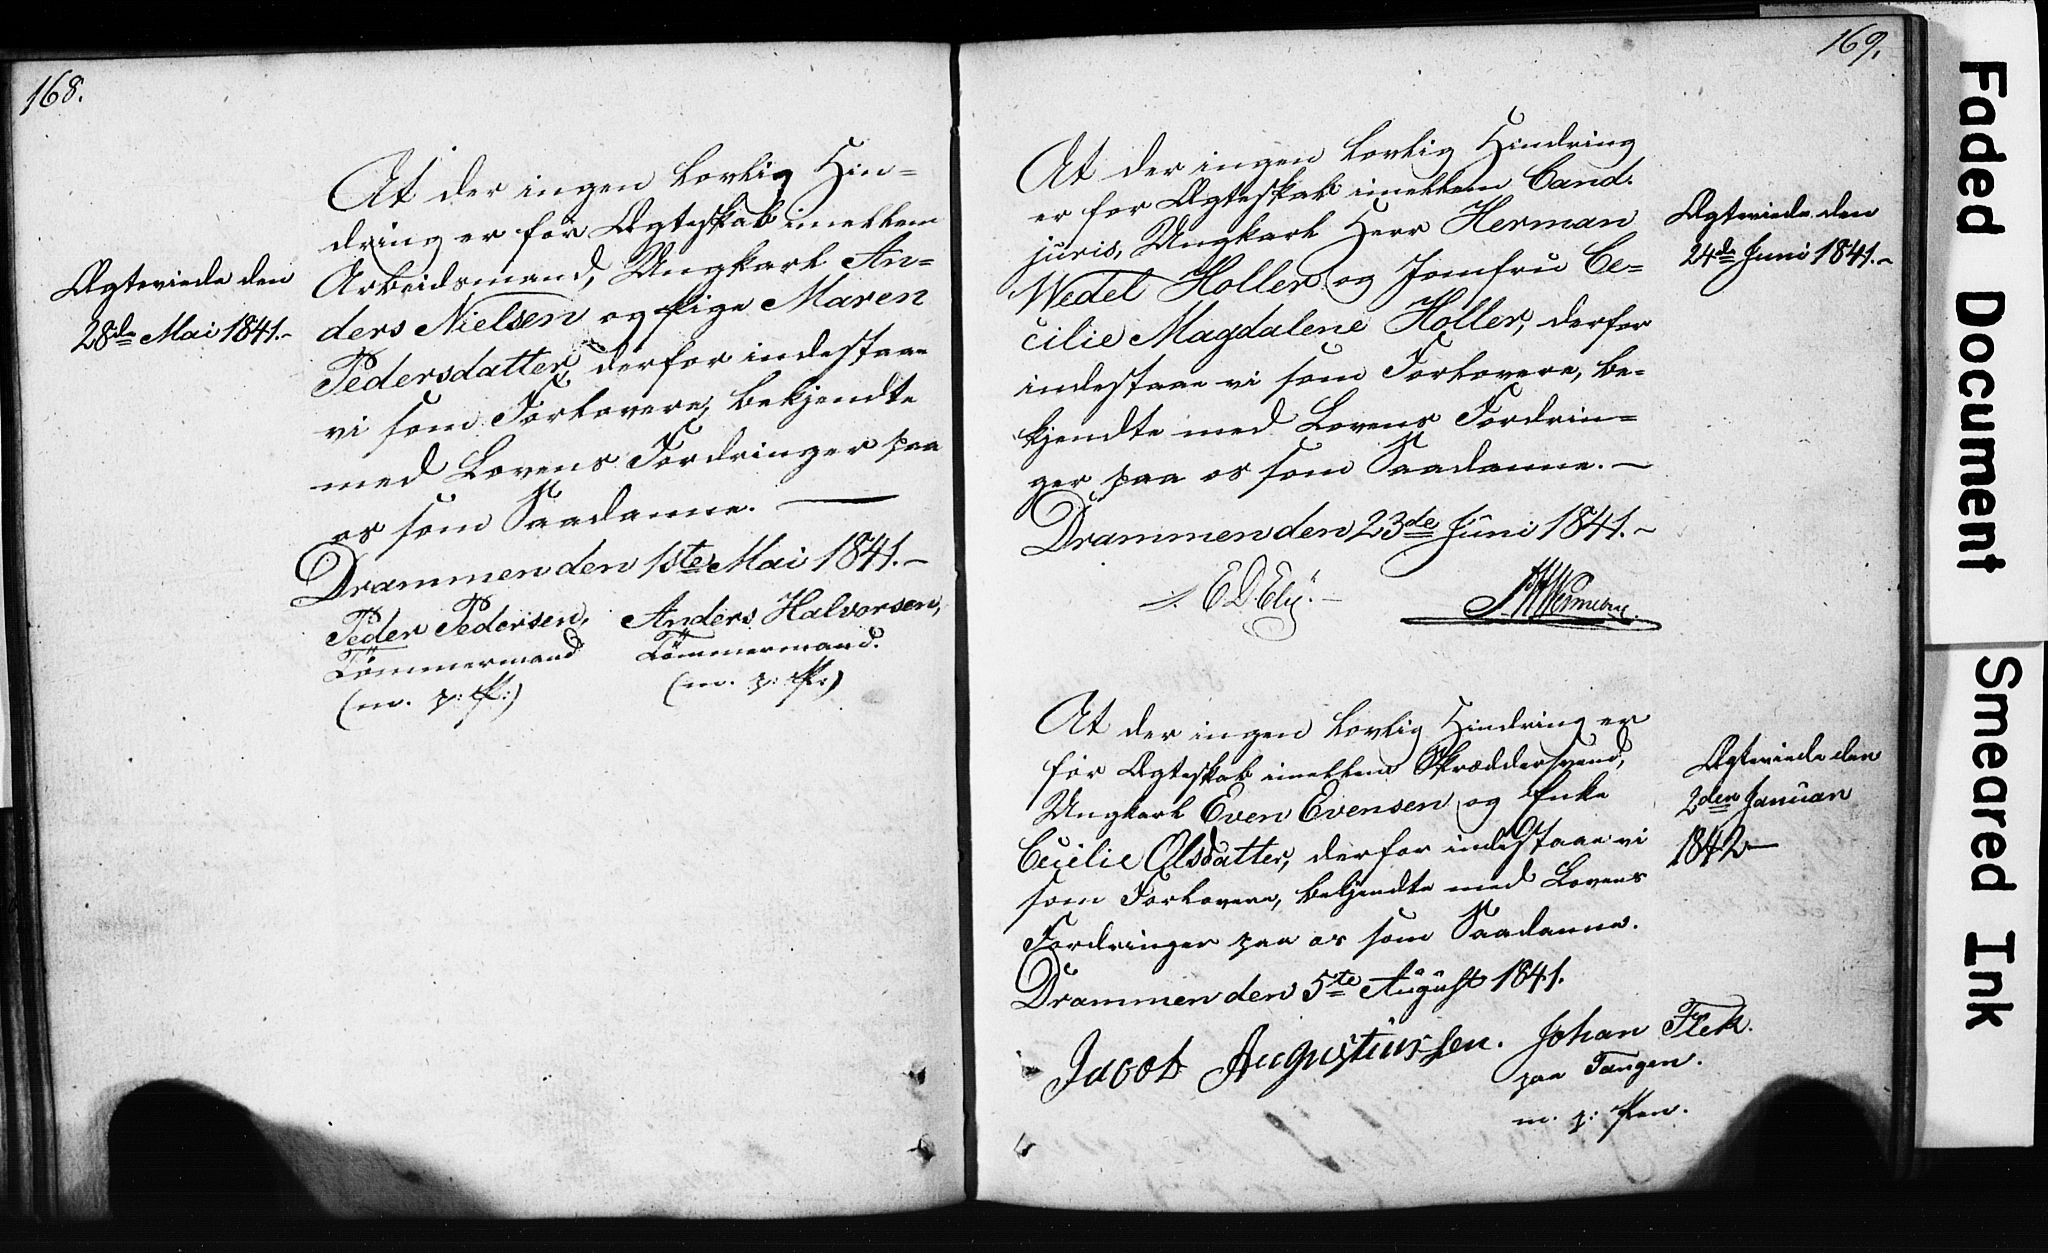 168.
At der ingen lovlig Hin=
dring er for Ægteskab imellem
Arbeidsmand, Ungkarl An=
ders Nielsen og Pige Maren
Pedersdatter, derfor indestaae
vi som Forlovere, bekjendte
med Lovens Fordringer paa
os som Saadanne. —
Drammen den 1ste Mai 1841.-
Peder Pedersen, Anders Halvorsen,
Tömmermand Tömmermand.
(m. p: P:) (m. p: P:)
Ægteviede den
28de Mai 1841.-
169.
At der ingen lovlig Hindring
er for Ægteskab imellem Cand.
juris, Ungkarl Herr Herman
Wedel Holler og Jomfru Ce=
cilie Magdalene Holler, derfor
indestaae vi som Forlovere, be=
kjendte med Lovens Fordrin=
ger paa os som Saadanne. —
Drammen den 23de Juni 1841.-
Ægteviede den
24de Juni 1841.-
At der ingen lovlig Hindring er
for Ægteskab imellem Skræddersvend,
Ungkarl Even Evensen og Enke
Cecilie Olsdatter, derfor indestaae vi
som Forlovere, bekjendte med Lovens
Fordringer paa os som Saadanne.
Drammen den 5te August 1841.
Jacob Augustinssen. Johan Flek.
paa Tangen.
m. p: Pen.
Ægteviede den
2den Januar
1842—
Faded Document
Smeared Ink